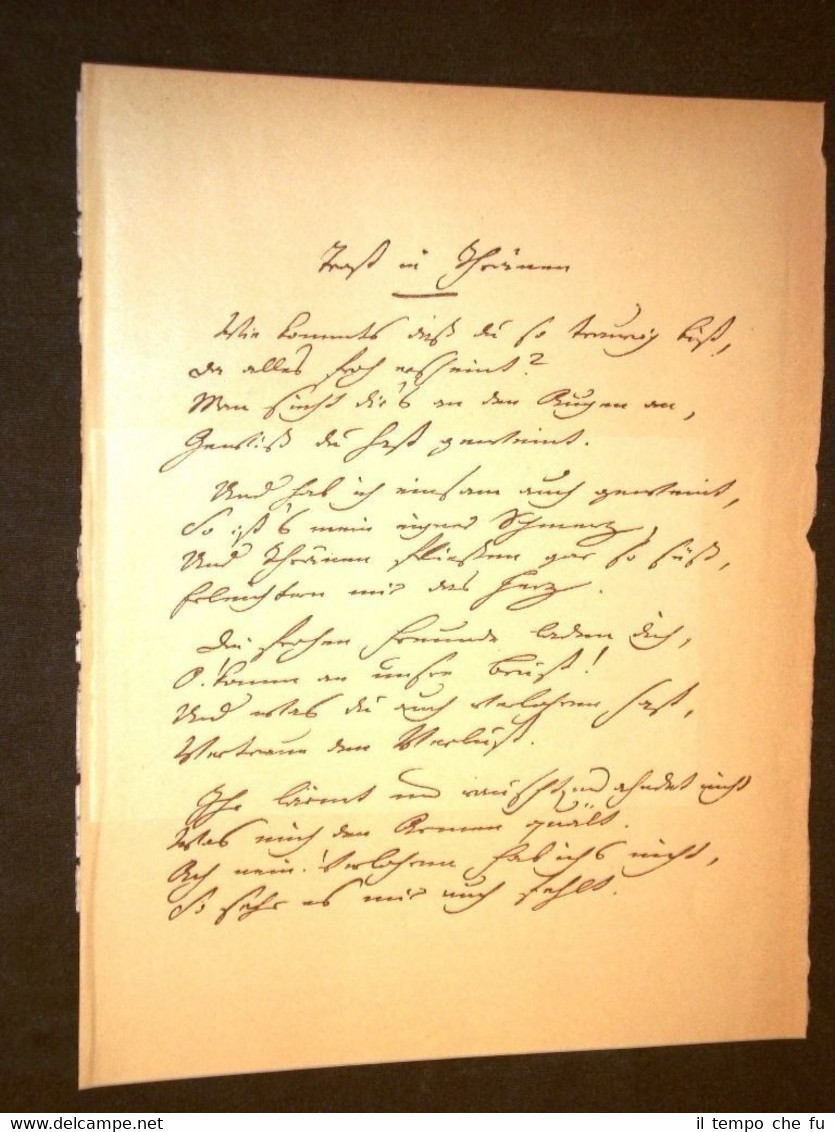 Trost in Thränen
Wie kommts daß du so traurig bist,
da alles froh erscheint?
Man sieht dir's an den Augen an,
Gewiß du hast geweint.
Und hab ich einsam auch geweint,
So ist's mein eigner Schmerz,
Und Thränen fliessen gar so süß,
Erleichtern mir das Herz.
Die frohen Freunde laden dich,
O! komm an unsre Brust!
Und was du auch verlohren hast,
Vertraue den Verlust.
Ihr lärmt und rauscht und ahndet nicht
Was mich den Armen quält.
Ach nein! Verlohren hab ichs nicht,
So sehr es mir auch fehlt.
www.delcampe.net
il tempo che fu